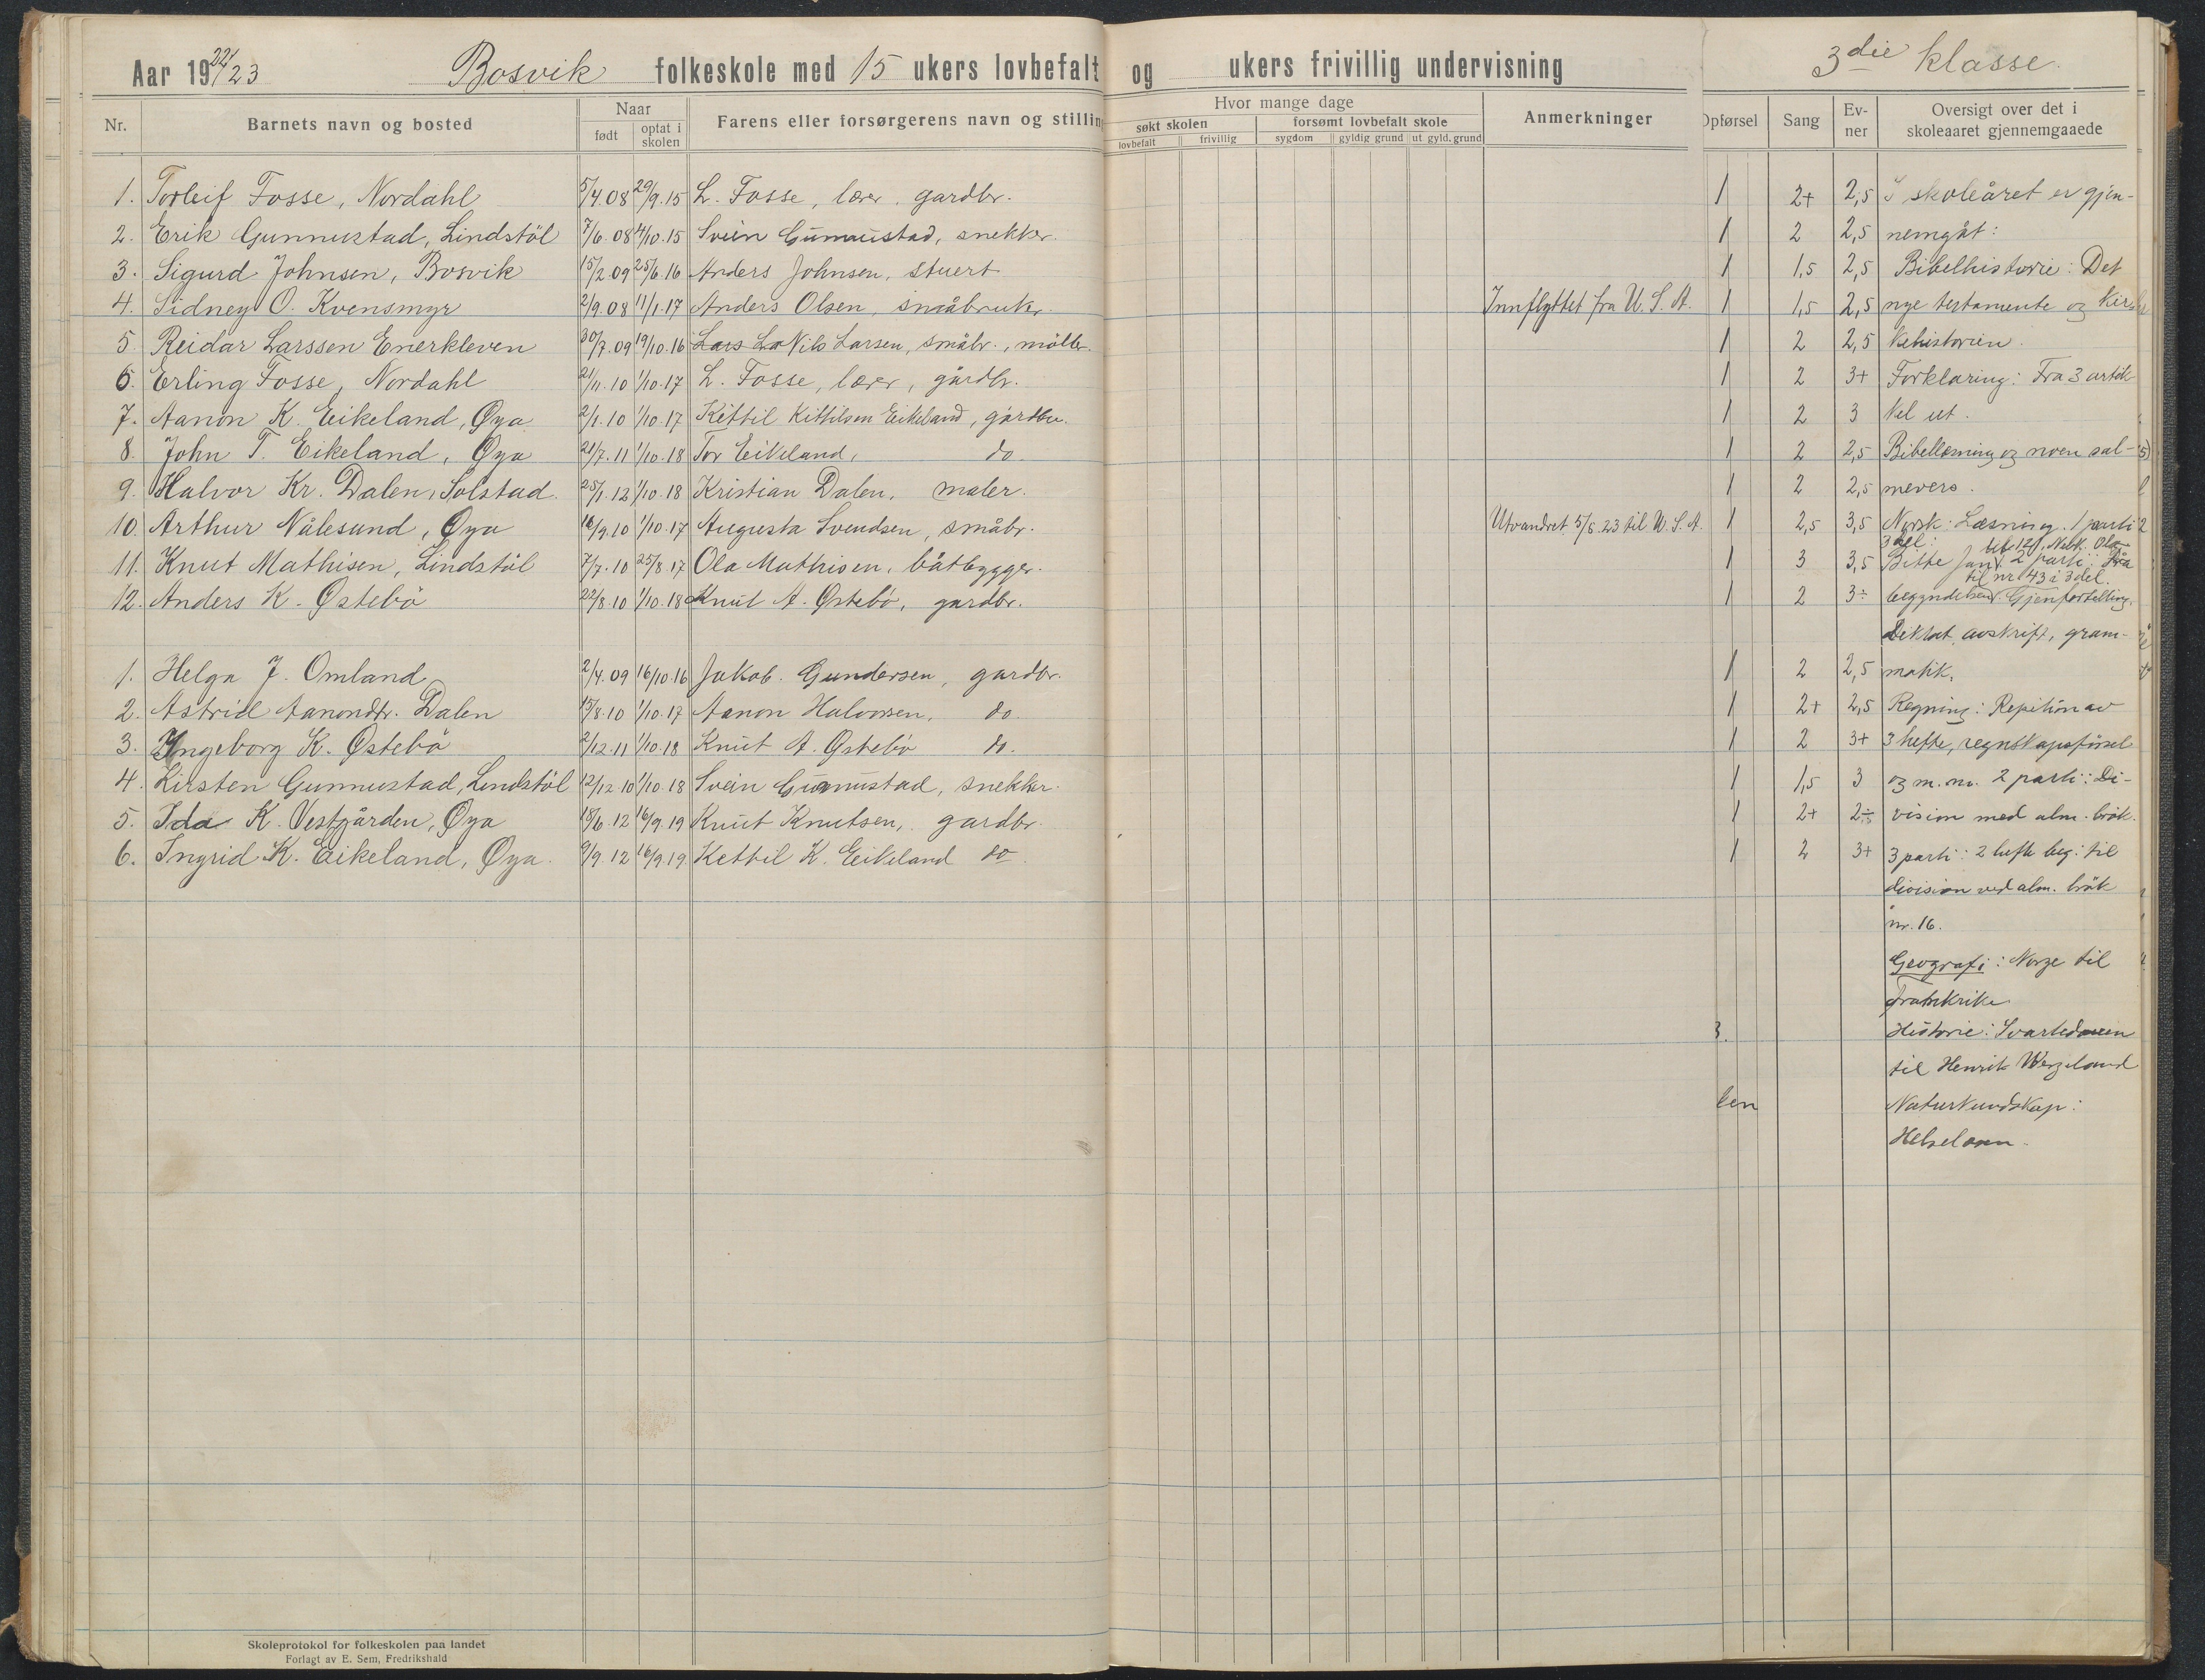 Aar 1922/23 Bosvik folkeskole med 15 ukers lovbefalt og ukers frivillig undervisning 3die klasse.
Nr. Barnets navn og bosted Naar født optat i skolen Farens eller forsørgerens navn og stilling Hvor mange dage søkt skolen lovbefalt frivillig forsømt lovbefalt skole sygdom gyldig grund ut gyld. grund Anmerkninger Opførsel Sang Ev-ner Oversigt over det i skoleaaret gjennemgaaede
1. Torleif Fosse, Nordahl 5/4.08 29/9.15 L. Fosse, lærer, gardbr. 1 2+ 2,5 I skoleåret er gjen-
2. Erik Gunnustad, Lindstöl 7/6.08 4/10.15 Svein Gunnustad, snekker. 1 2 2,5 nemgåt:
3. Sigurd Johnsen, Bosvik 15/2.09 25/6.16 Anders Johnsen, stuert 1 1,5 2,5 Bibelhistorie: Det
4. Sidney O. Kvensmyr 2/9.08 11/1.17 Anders Olsen, småbruker. Innflyttet fra U.S.A. 1 1,5 2,5 nye testamente og kir-
5. Reidar Larssen Enerkleven 30/7.09 19/10.16 Lars La Nils Larsen, småbr., møller. 1 2 2,5 kehistorien.
6. Erling Fosse, Nordahl 21/11.10 1/10.17 L. Fosse, lærer, gårdbr. 1 2 3+ Forklaring: Fra 3 artik-
7. Aanon K. Eikeland, Øya 2/1.10 1/10.17 Kittil Kittilsen Eikeland, gårdbr. 1 2 3 kel ut.
8. John T. Eikeland, Øya 21/7.11 1/10.18 Tor Eikeland, do. 1 2 2,5 Bibellesning og noen sal-
9. Halvor Kr. Dalen, Solstad. 25/1.12 1/10.18 Kristian Dalen, maler. 1 2 2,5 mevers.
10. Arthur Nålesund, Øya 16/9.10 1/10.17 Augusta Svendsen, småbr. Utvandret 5/8.23 til U.S.A. 1 2,5 3,5 Norsk: Læsning. 1 parti
3 del:
11. Knut Mathisen, Lindstöl 7/7.10 25/8.17 Ola Mathisen, båtbygger. 1 3 3,5 Bitte Jan. 2 parti: Fra
til nr. 43 i 3 del.
12. Anders K. Østebö 22/8.10 1/10.18 Knut A. Østebö, gardbr. 1 2 3÷ begyndelsen. Gjenfortelling.
Diktat, avskrift, gram-
1. Helga J. Omland 2/4.09 16/10.16 Jakob Gundersen, gardbr. 1 2 2,5 matik.
2. Astrid Aanondtr. Dalen 15/8.10 1/10.17 Aanon Halvorsen, do. 1 2+ 2,5 Regning: Repition av
3. Ingeborg K. Østebö 2/12.11 1/10.18 Knut A. Østebö do. 1 2 3+ 3 hefte, regnskapsførsel
4. Kirsten Gunnustad, Lindstöl 12/12.10 1/10.18 Svein Gunnustad, snekker. 1 1,5 3 og m. m. 2 parti: Di-
5. Ida K. Vestgården, Øya 18/6.12 16/9.19 Knut Knutsen, gardbr. 1 2+ 2,5÷ vision med alm. brök.
6. Ingrid K. Eikeland, Øya. 9/9.12 16/9.19 Kettil K. Eikeland do 1 2 3+ 3 parti: 2 hefte beg: til
division ved alm. brök
nr. 16.
Geografi: Norge til
Frankrike
3. Historie: Svartedauen
til Henrik Wergeland
len Naturkundskap:
Helselæren.
Skoleprotokol for folkeskolen paa landet
Forlagt av E. Sem, Fredrikshald